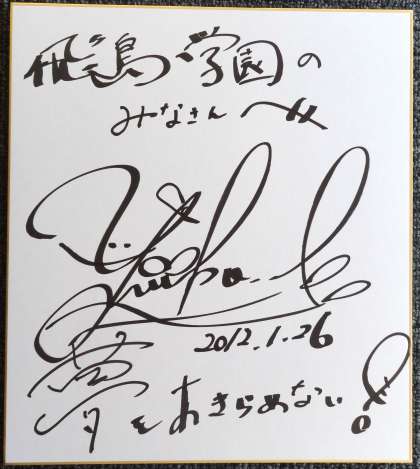 飛鳥学園の
みなさんへ
2012.1.26
夢をあきらめない!